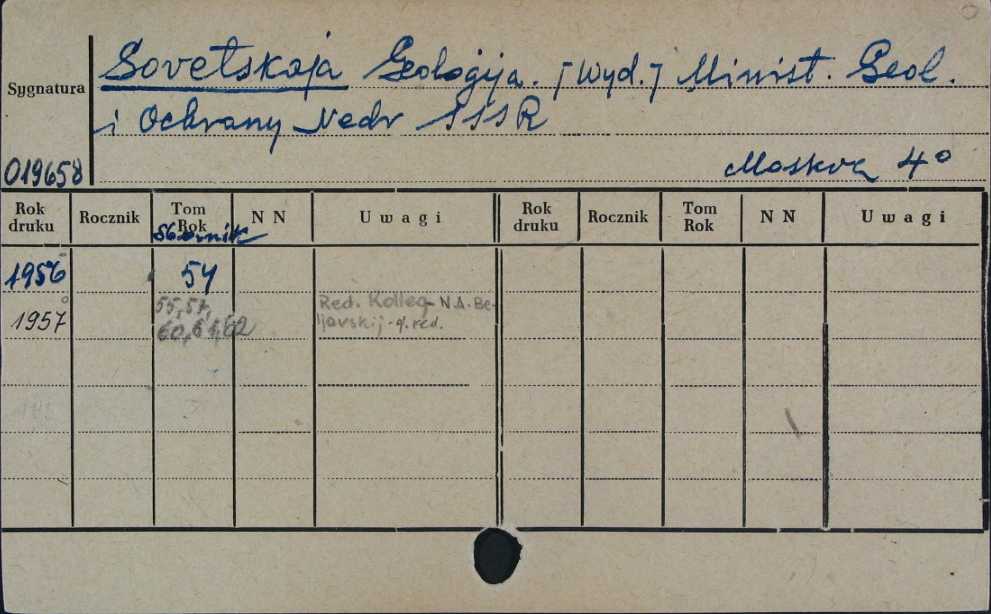 Sovetskaja Geologija. [Wyd.] Minist. Geol.
Sygnatura
i Ochrany Nedr SSSR
019658
Moskva 4°
Rok druku Rocznik Tom Rok N N Uwagi Rok druku Rocznik Tom Rok N N Uwagi
Sbornik
1956 54
1957 55, 57, Red. Kolleg N.A. Be-
60, 61, 62 ljavskij - gl. red.